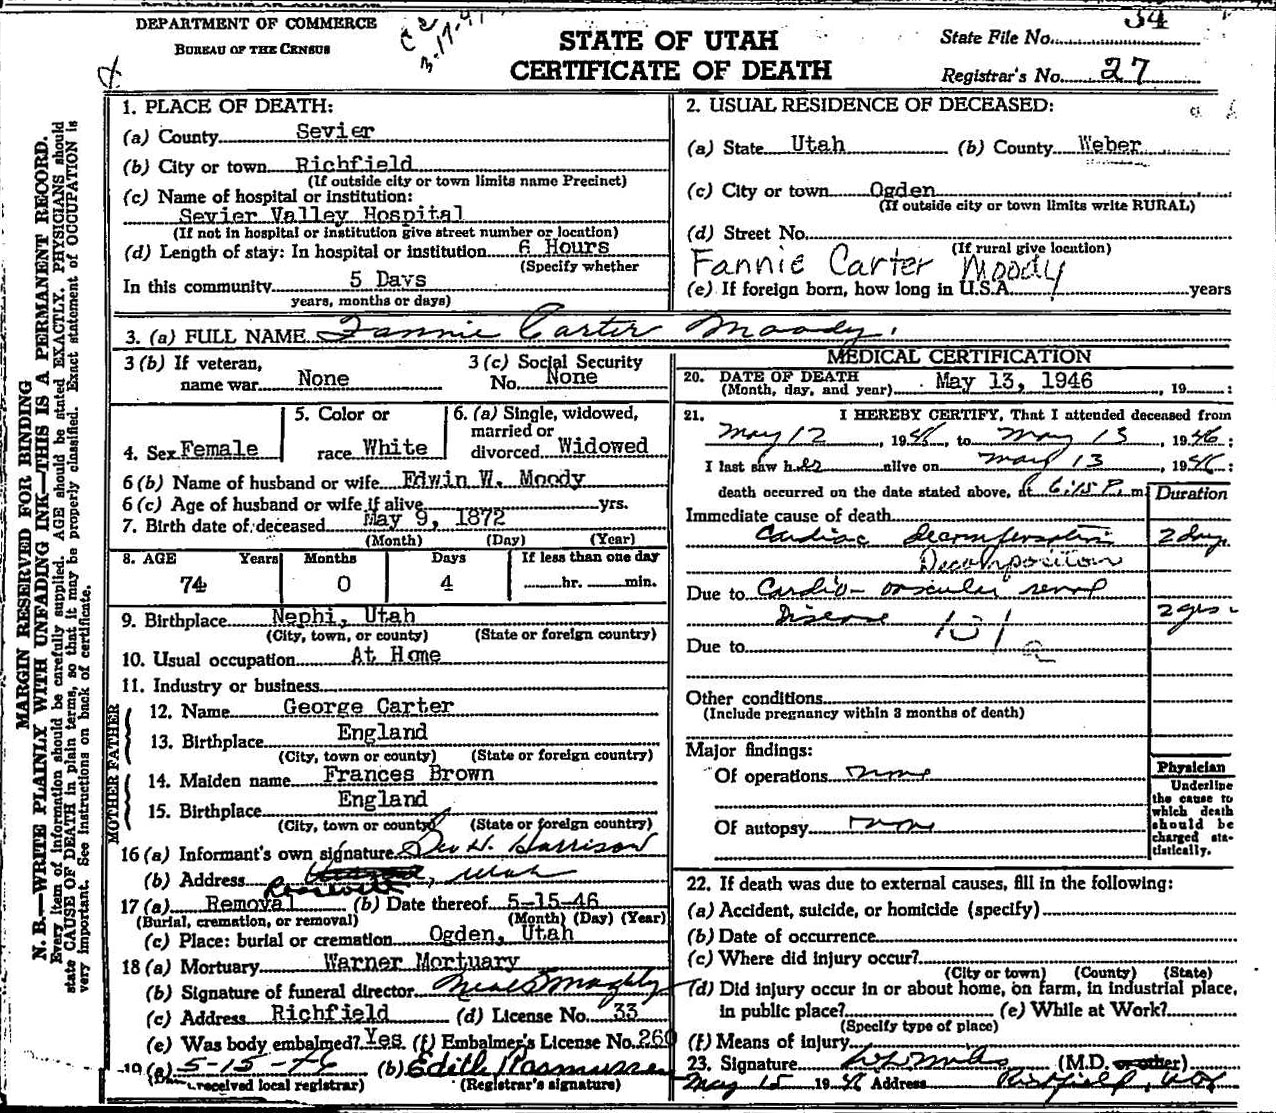 DEPARTMENT OF COMMERCE
BUREAU OF THE CENSUS
STATE OF UTAH
CERTIFICATE OF DEATH
State File No. 34
Registrar's No. 27
MARGIN RESERVED FOR BINDING
N. B.—WRITE PLAINLY WITH UNFADING INK—THIS IS A PERMANENT RECORD.
Every item of information should be carefully supplied. AGE should be stated EXACTLY. PHYSICIANS should
state CAUSE OF DEATH in plain terms, so that it may be properly classified. Exact statement of OCCUPATION is
very important. See instructions on back of certificate.
1. PLACE OF DEATH:
(a) County Sevier
(b) City or town Richfield
(If outside city or town limits name Precinct)
(c) Name of hospital or institution:
Sevier Valley Hospital
(If not in hospital or institution give street number or location)
(d) Length of stay: In hospital or institution 6 Hours
(Specify whether
In this community 5 Days
years, months or days)
2. USUAL RESIDENCE OF DECEASED:
(a) State Utah (b) County Weber
(c) City or town Ogden
(If outside city or town limits write RURAL)
(d) Street No.
(If rural give location)
Fannie Carter Moody
(e) If foreign born, how long in U.S.A. years
3. (a) FULL NAME Fannie Carter Moody
3 (b) If veteran, name war None
3 (c) Social Security No. None
4. Sex Female
5. Color or race White
6. (a) Single, widowed, married or divorced Widowed
6 (b) Name of husband or wife Edwin W. Moody
6 (c) Age of husband or wife if alive yrs.
7. Birth date of deceased May 9, 1872
(Month) (Day) (Year)
8. AGE Years Months Days If less than one day
74 0 4 hr. min.
9. Birthplace Nephi, Utah
(City, town, or county) (State or foreign country)
10. Usual occupation At Home
11. Industry or business
FATHER
12. Name George Carter
13. Birthplace England
(City, town or county) (State or foreign country)
MOTHER
14. Maiden name Frances Brown
15. Birthplace England
(City, town or county) (State or foreign country)
16 (a) Informant's own signature Geo H. Harrison
(b) Address Roosevelt, Utah
17 (a) Removal (b) Date thereof 5-15-46
(Burial, cremation, or removal) (Month) (Day) (Year)
(c) Place: burial or cremation Ogden, Utah
18 (a) Mortuary Warner Mortuary
(b) Signature of funeral director
(c) Address Richfield (d) License No. 33
(e) Was body embalmed? Yes (f) Embalmer's License No. 260
19 (a) 5-15-46 (b) Edith Rasmussen
(Date received local registrar) (Registrar's signature)
MEDICAL CERTIFICATION
20. DATE OF DEATH
(Month, day, and year) May 13, 1946, 19 :
21. I HEREBY CERTIFY, That I attended deceased from
May 12, 1946, to May 13, 1946;
I last saw her alive on May 13, 1946;
death occurred on the date stated above, at 6:15 P. m
Duration
Immediate cause of death
Cardiac decompensation 2 days
Decomposition
Due to Cardio-vascular renal
Disease 131 a 2 yrs
Due to
Other conditions
(Include pregnancy within 3 months of death)
Major findings:
Of operations none
Of autopsy none
Physician
Underline
the cause to
which death
should be
charged sta-
tistically.
22. If death was due to external causes, fill in the following:
(a) Accident, suicide, or homicide (specify)
(b) Date of occurrence
(c) Where did injury occur?
(City or town) (County) (State)
(d) Did injury occur in or about home, on farm, in industrial place,
in public place? (e) While at Work?
(Specify type of place)
(f) Means of injury
23. Signature (M.D. or other)
May 15 1946 Address Richfield, Utah